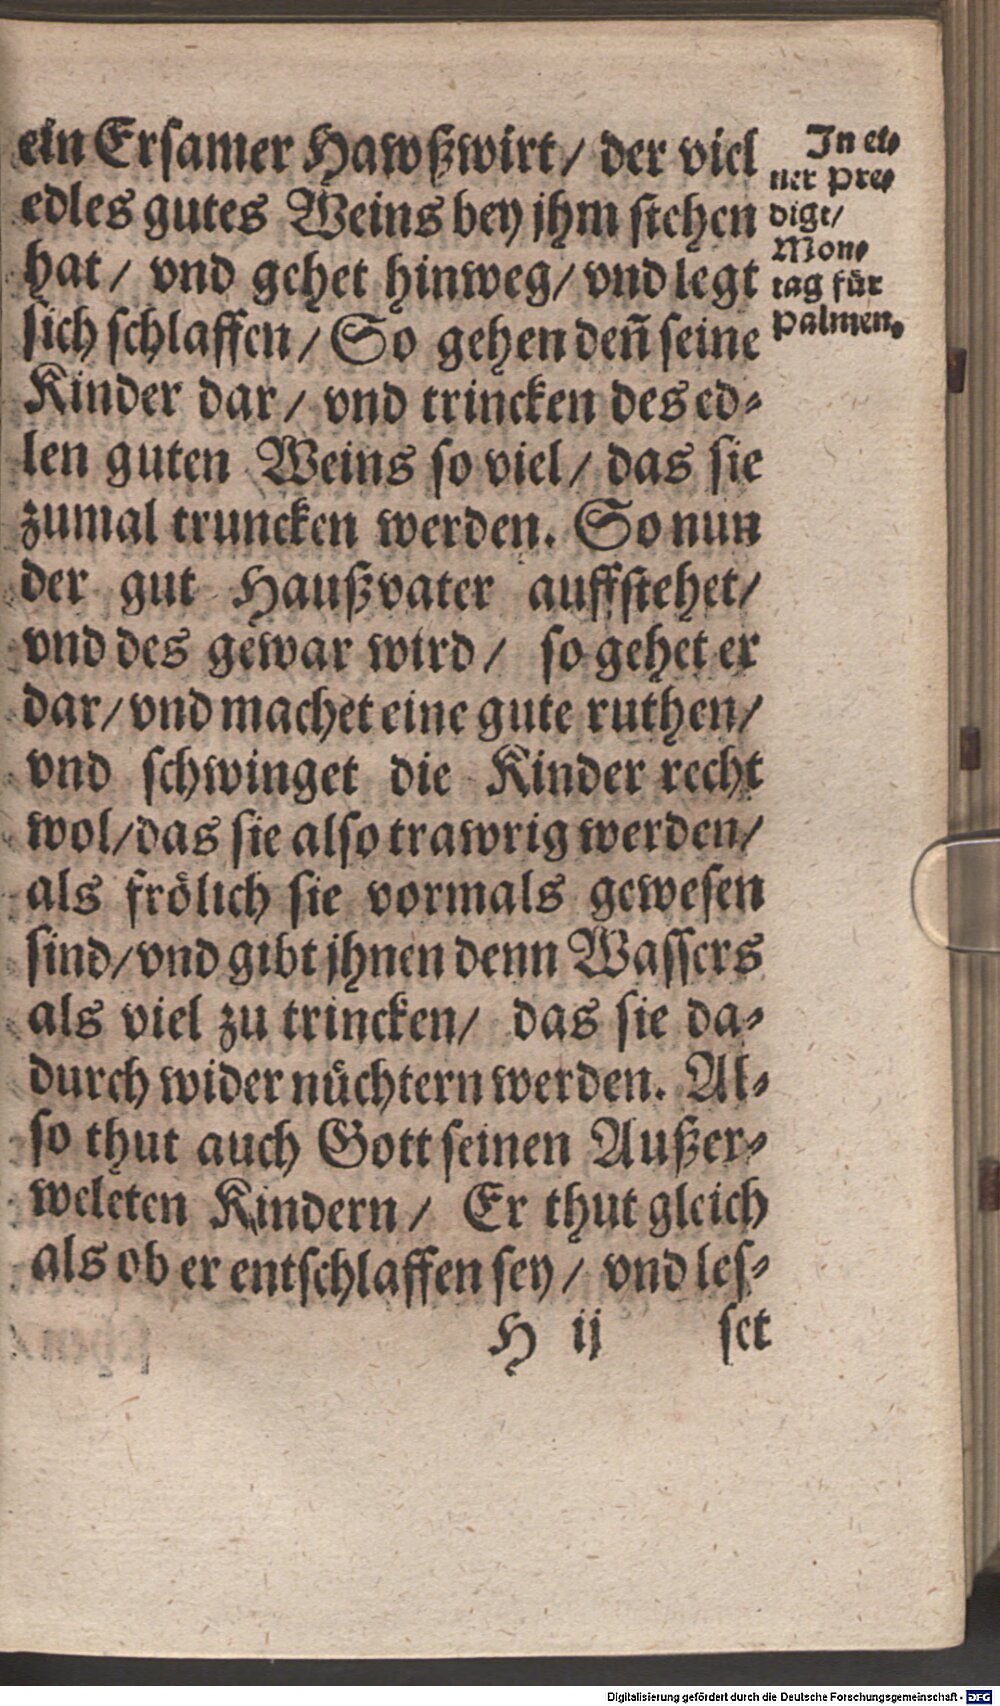 ein Ersamer Hawßwirt / der viel
edles gutes Weins bey jhm stehen
hat / vnd gehet hinweg / vnd legt
sich schlaffen / So gehen den̄ seine
Kinder dar / vnd trincken des ed-
len guten Weins so viel / das sie
zumal truncken werden. So nun
der gut Haußvater auffstehet /
vnd des gewar wird / so gehet er
dar / vnd machet eine gute ruthen /
vnd schwinget die Kinder recht
wol / das sie also trawrig werden /
als frölich sie vormals gewesen
sind / vnd gibt jhnen denn Wassers
als viel zu trincken / das sie da-
durch wider nüchtern werden. Al-
so thut auch Gott seinen Außer-
weleten Kindern / Er thut gleich
als ob er entschlaffen sey / vnd les-
H ij set
In ei-
ner Pre-
digt /
Mon-
tag für
Palmen.
Digitalisierung gefördert durch die Deutsche Forschungsgemeinschaft - DFG